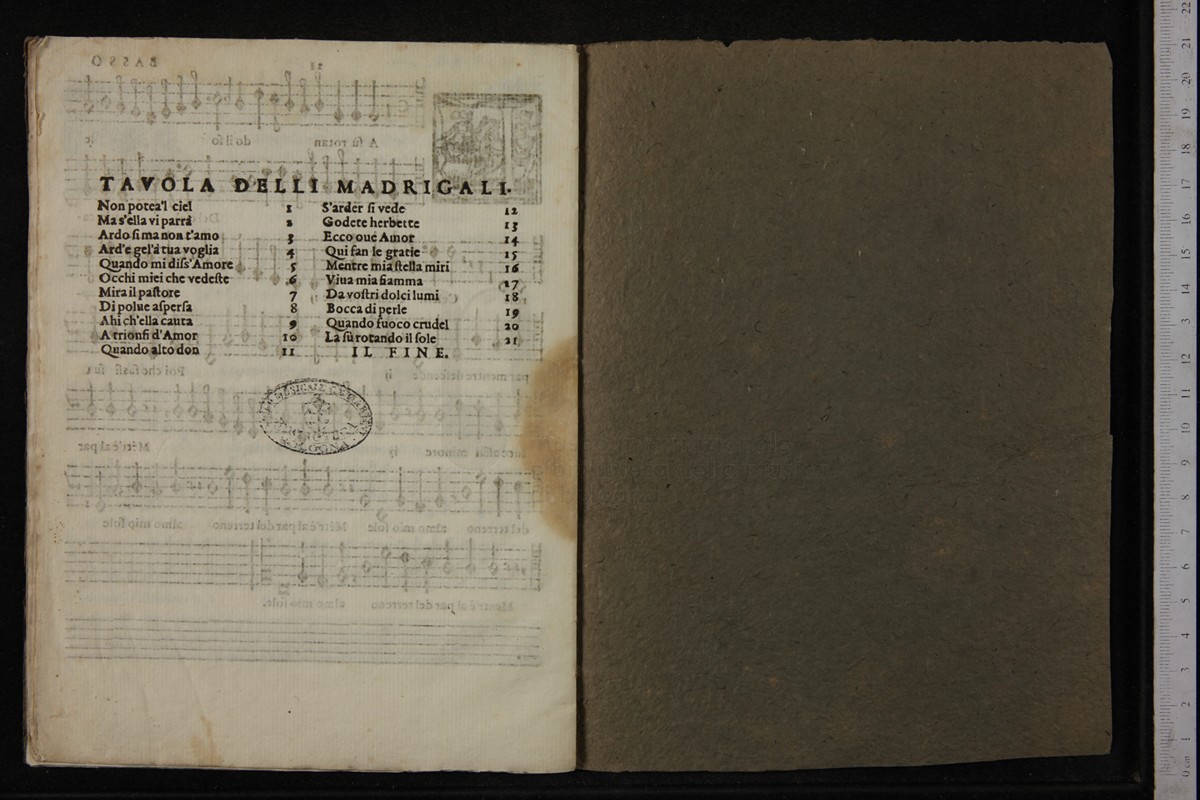 TAVOLA DELLI MADRIGALI.
Non potea'l ciel 1
Ma s'ella vi parrà 2
Ardo ſi ma non t'amo 3
Ard'e gel'à tua voglia 4
Quando mi diſs'Amore 5
Occhi miei che vedeſte 6
Mira il paſtore 7
Di polue aſperſa 8
Ahi ch'ella cauta 9
A trionfi d'Amor 10
Quando alto don 11
S'arder ſi vede 12
Godete herbette 13
Ecco oue Amor 14
Qui fan le gratie 15
Mentre mia ſtella miri 16
Viua mia fiamma 17
Da voſtri dolci lumi 18
Bocca di perle 19
Quando fuoco crudel 20
La sù rotando il ſole 21
IL FINE.